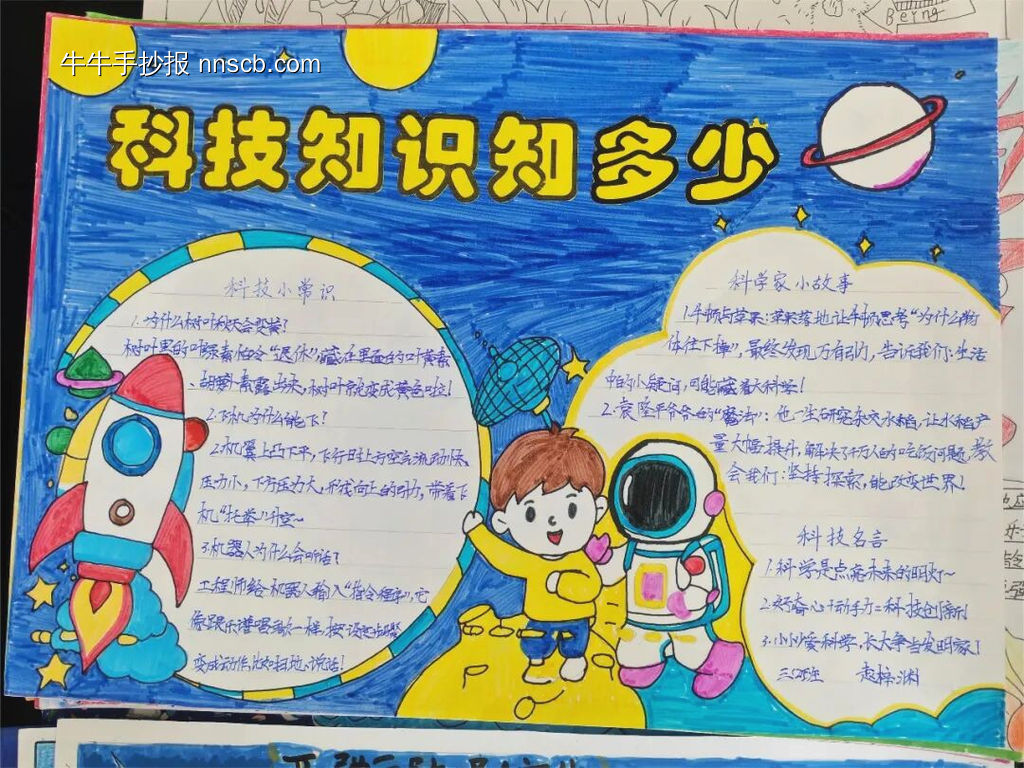 牛牛手抄报 nnscb.com
Being
科技知识知多少
科技小常识
1.为什么树叶秋天会变黄?
树叶里的叶绿素怕冷"退休",藏在里面的叶黄素
、胡萝卜素露出来,树叶就变成黄色啦!
2.飞机为什么能飞?
2.机翼上凸下平,飞行时上方空气流动快
压力小,下方压力大,形成向上的引力,带着飞
机"托举"升空~
3.机器人为什么会听话?
工程师给机器人输入"指令程序",它
像跟乐谱唱歌一样,按设定步骤
变成动作,比如扫地、说话!
科学家小故事
1.牛顿与苹果:苹果落地让牛顿思考"为什么物
体往下掉",最终发现万有引力,告诉我们:生活
中的小疑问,可能藏着大科学!
2.袁隆平爷爷的"魔法":他一生研究杂交水稻,让水稻产
量大幅提升,解决了千万人的吃饭问题,教
会我们:坚持探索,能改变世界!
科技名言
1.科学是点亮未来的明灯~
2.好奇心+动手力=科技创新!
3.小小爱科学,长大争当发明家!
三(2)班 赵梓渊